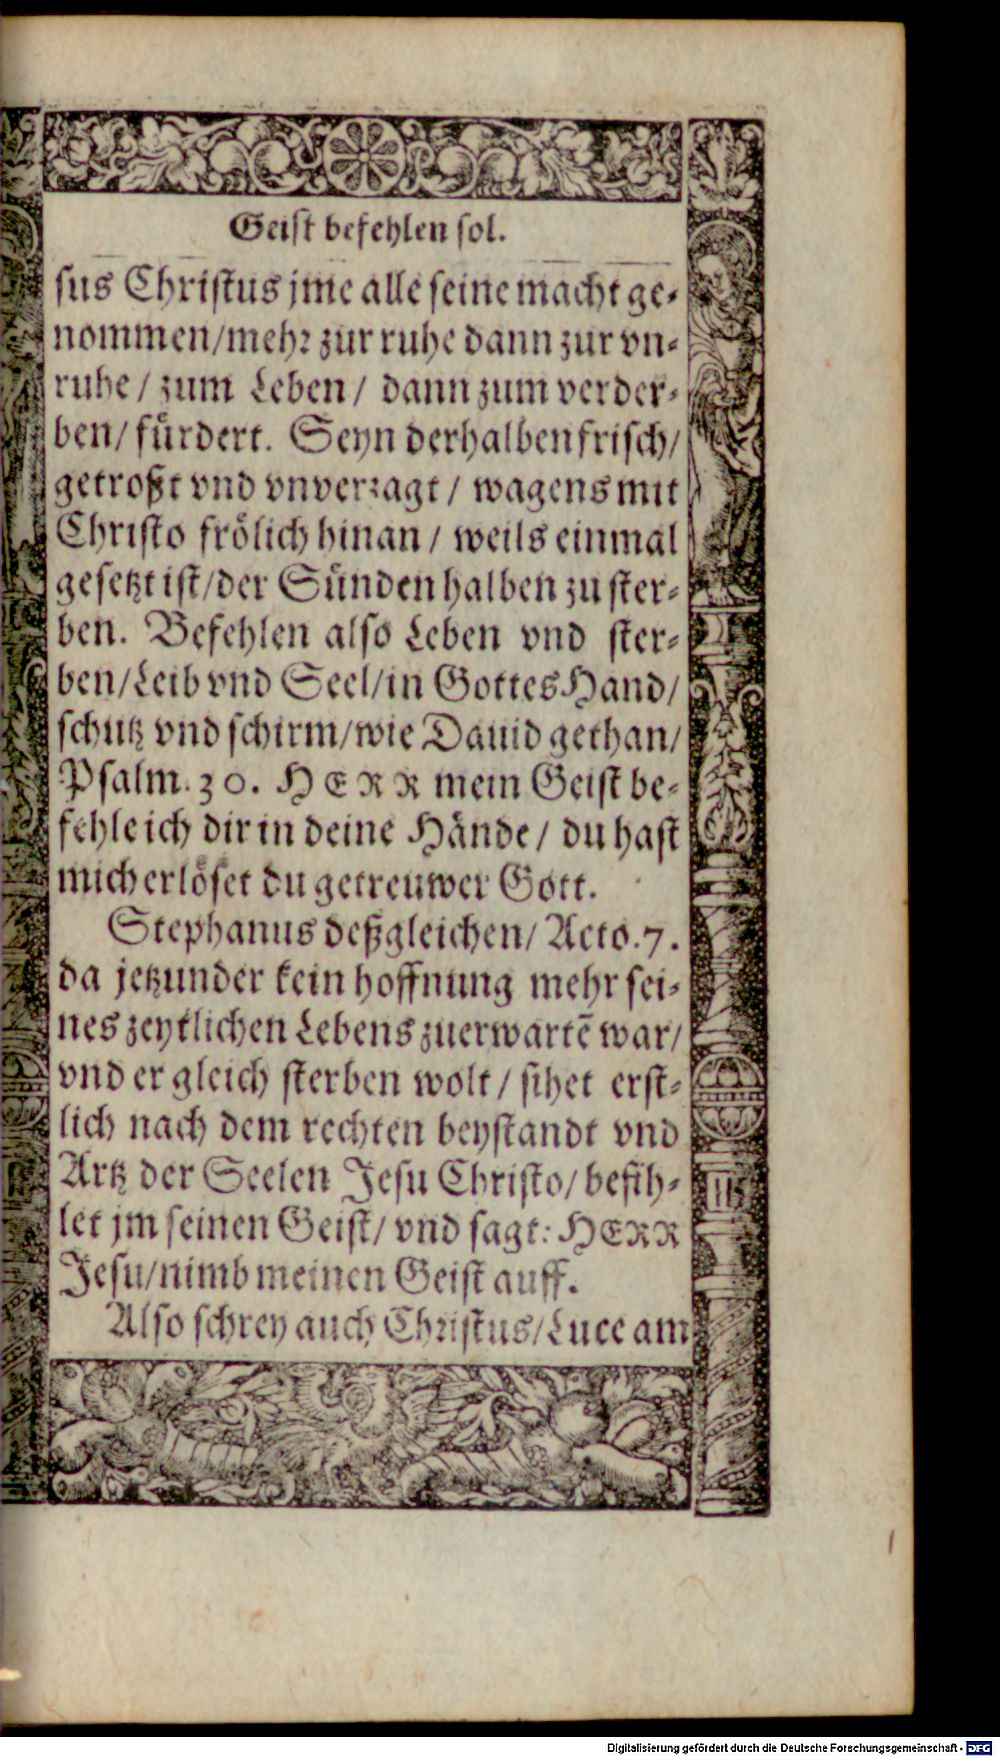 Geist befehlen sol.
sus Christus jme alle seine macht ge-
nommen/mehr zur ruhe dann zur vn-
ruhe / zum Leben / dann zum verder-
ben/ fürdert. Seyn derhalben frisch/
getroßt vnd vnverzagt / wagens mit
Christo frölich hinan / weils einmal
gesetzt ist/der Sünden halben zu ster-
ben. Befehlen also Leben vnd ster-
ben/Leib vnd Seel/in Gottes Hand/
schutz vnd schirm/wie Dauid gethan/
Psalm. 30. HERR mein Geist be-
fehle ich dir in deine Hände / du hast
mich erlöset du getreuwer Gott.
Stephanus deßgleichen/ Acto. 7.
da jetzunder kein hoffnung mehr sei-
nes zeytlichen Lebens zuerwartē war/
vnd er gleich sterben wolt / sihet erst-
lich nach dem rechten beystandt vnd
Artz der Seelen Jesu Christo/ befih-
let jm seinen Geist/ vnd sagt: HERR
Jesu/nimb meinen Geist auff.
Also schrey auch Christus/Luce am
Digitalisierung gefördert durch die Deutsche Forschungsgemeinschaft - DFG